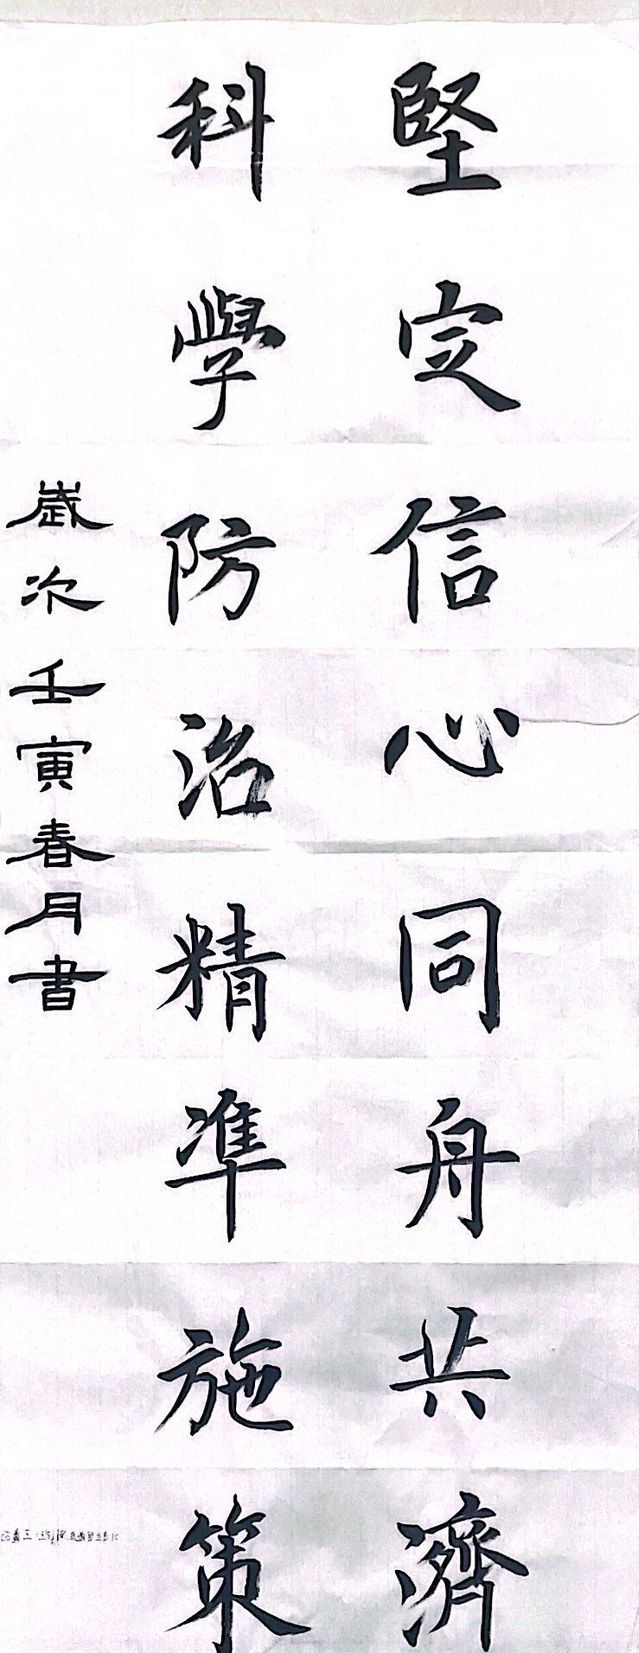 堅定信心同舟共濟
科學防治精準施策
歲次壬寅春月書